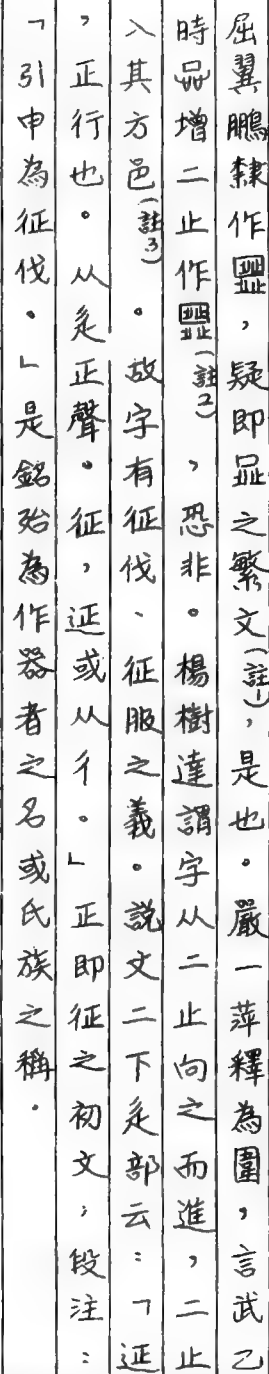 屈翼鵬隸作，疑即之繁文(註1)，是也。嚴一萍釋為圍，言武乙
時增二止作(註2)，恐非。楊樹達謂字从二止向之而進，二止
入其方邑(註3)。故字有征伐、征服之義。說文二下辵部云：「䢌
，正行也。从辵正聲。征，䢌或从彳。」正即征之初文；段注：
「引申為征伐。」是銘殆為作器者之名或氏族之稱．